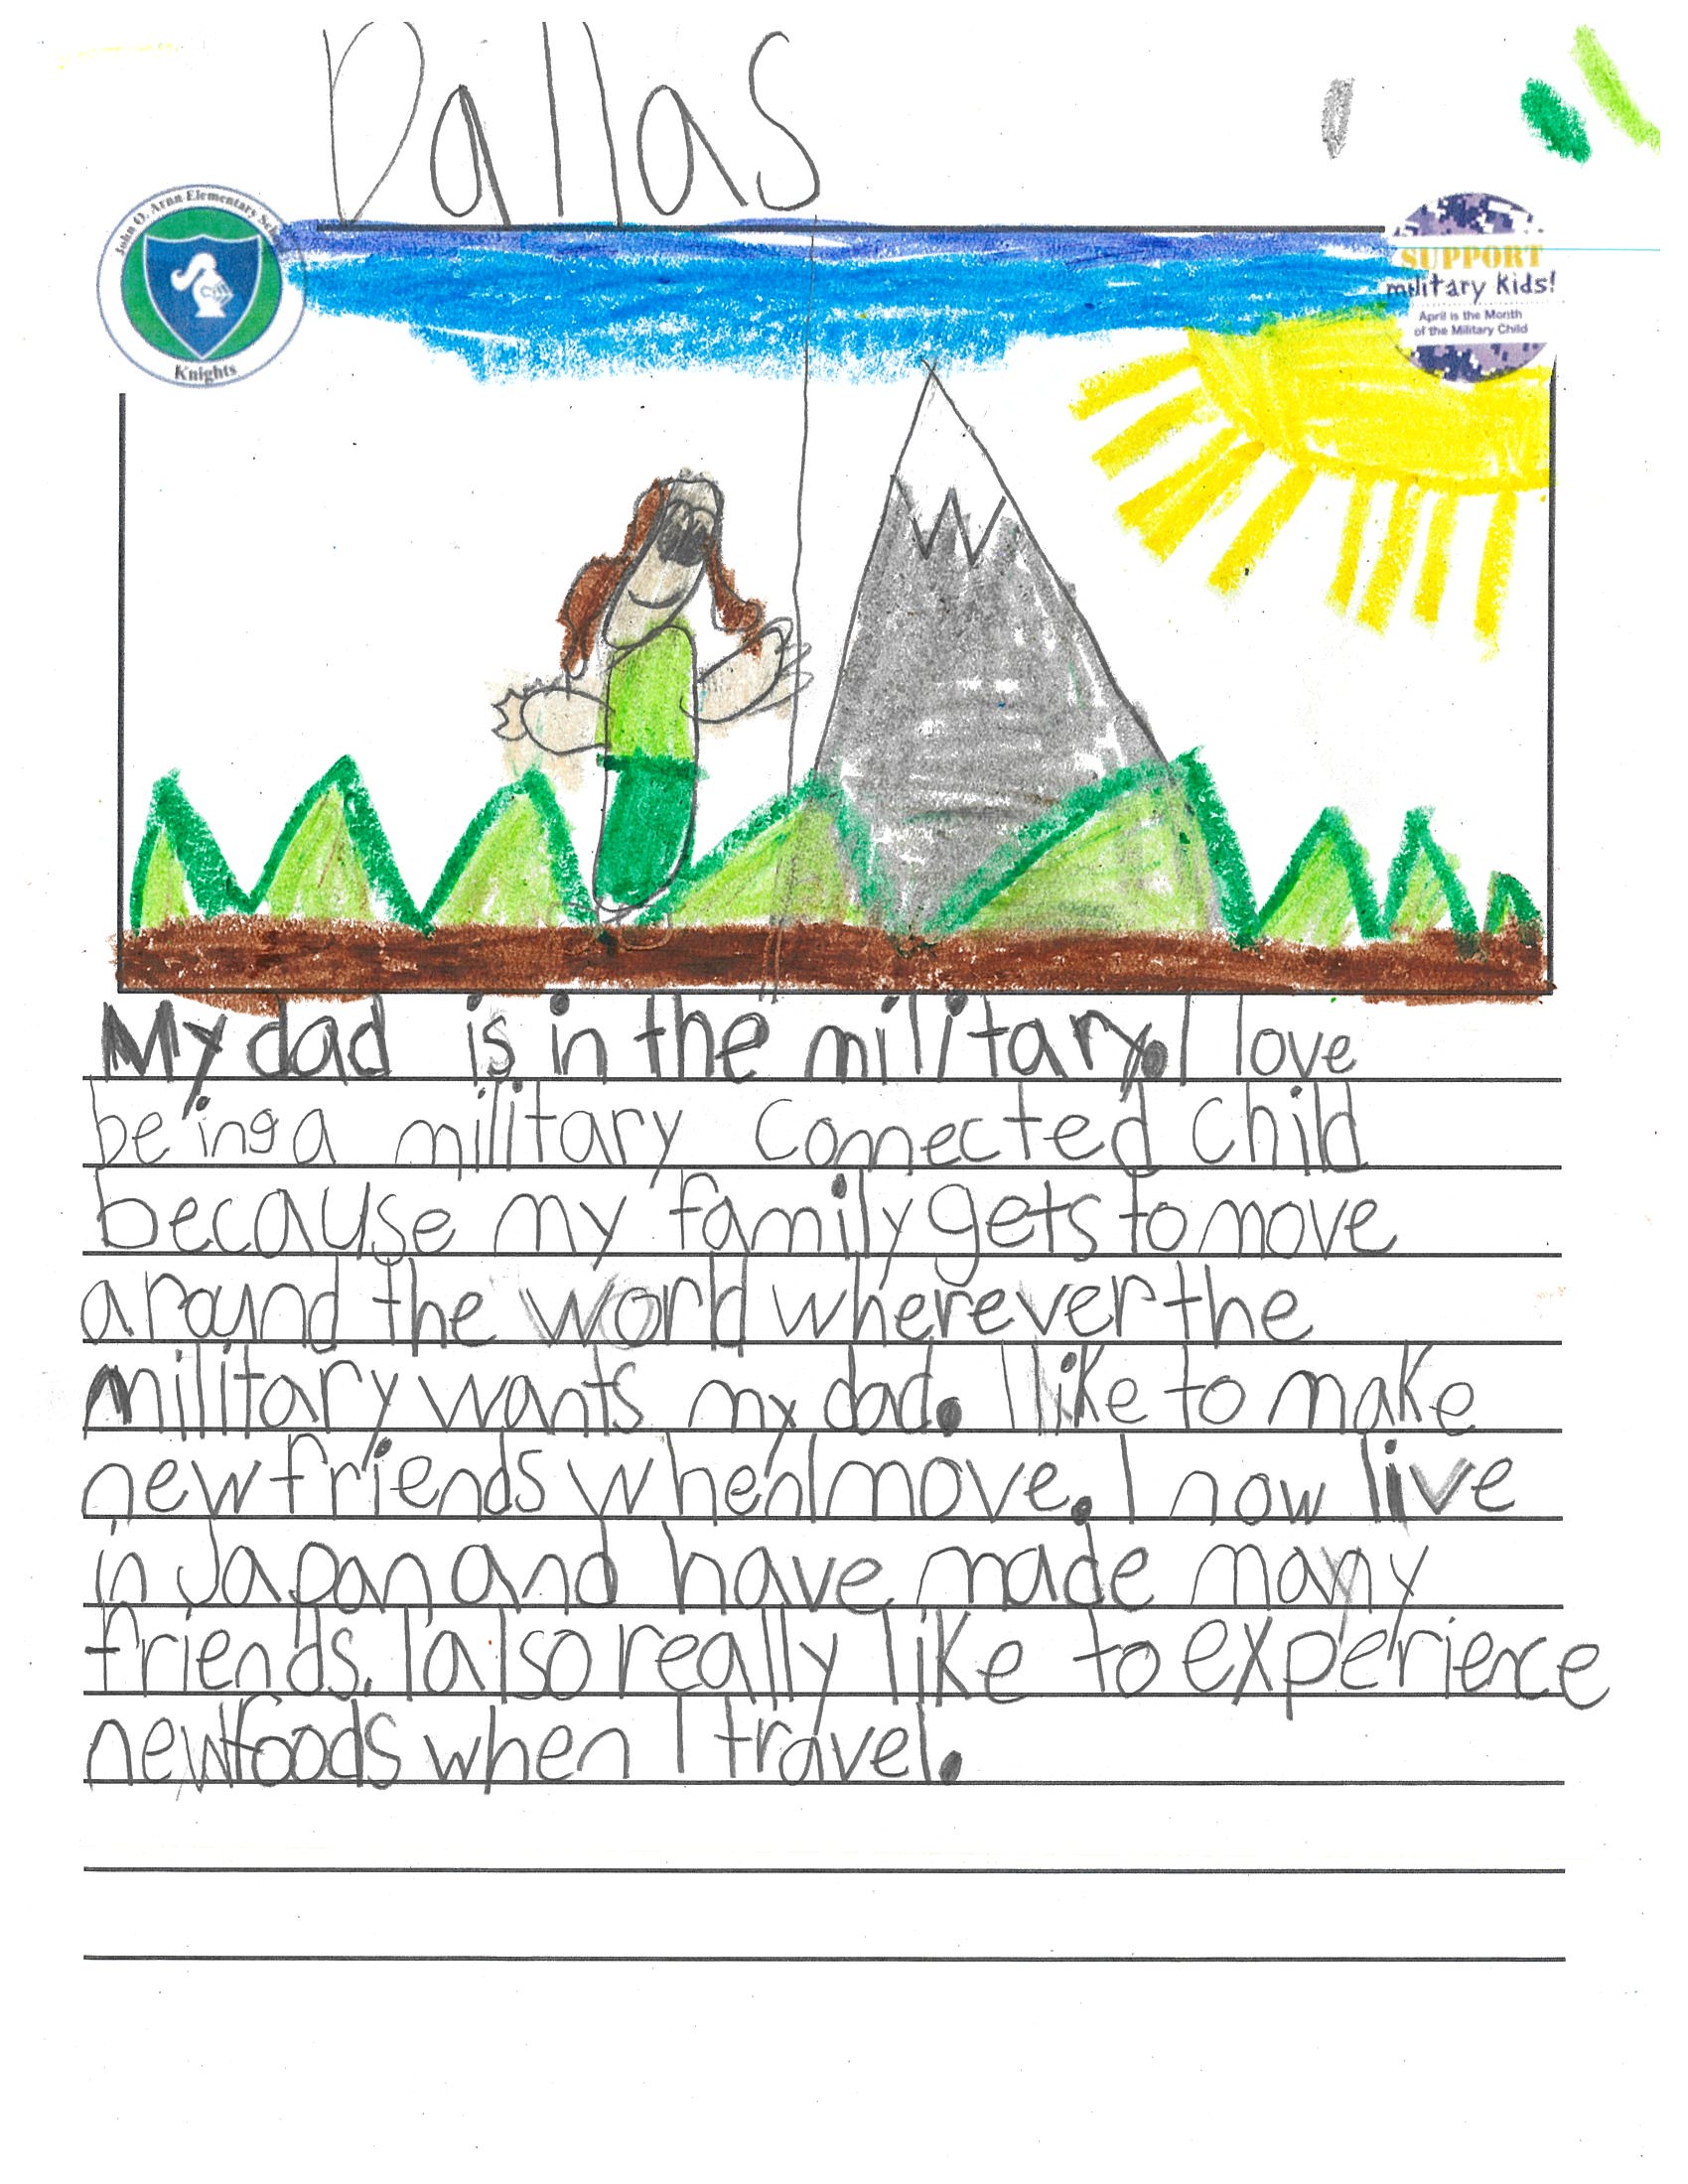 Dallas
John O. Arnn Elementary Scho
Knights
SUPPORT
military Kids!
April is the Month
of the Military Child
My dad is in the military. I love
being a military connected child
because my family gets to move
around the world wherever the
military wants my dad. I like to make
new friends when I move. I now live
in Japan and have made many
friends. I also really like to experience
new foods when I travel.